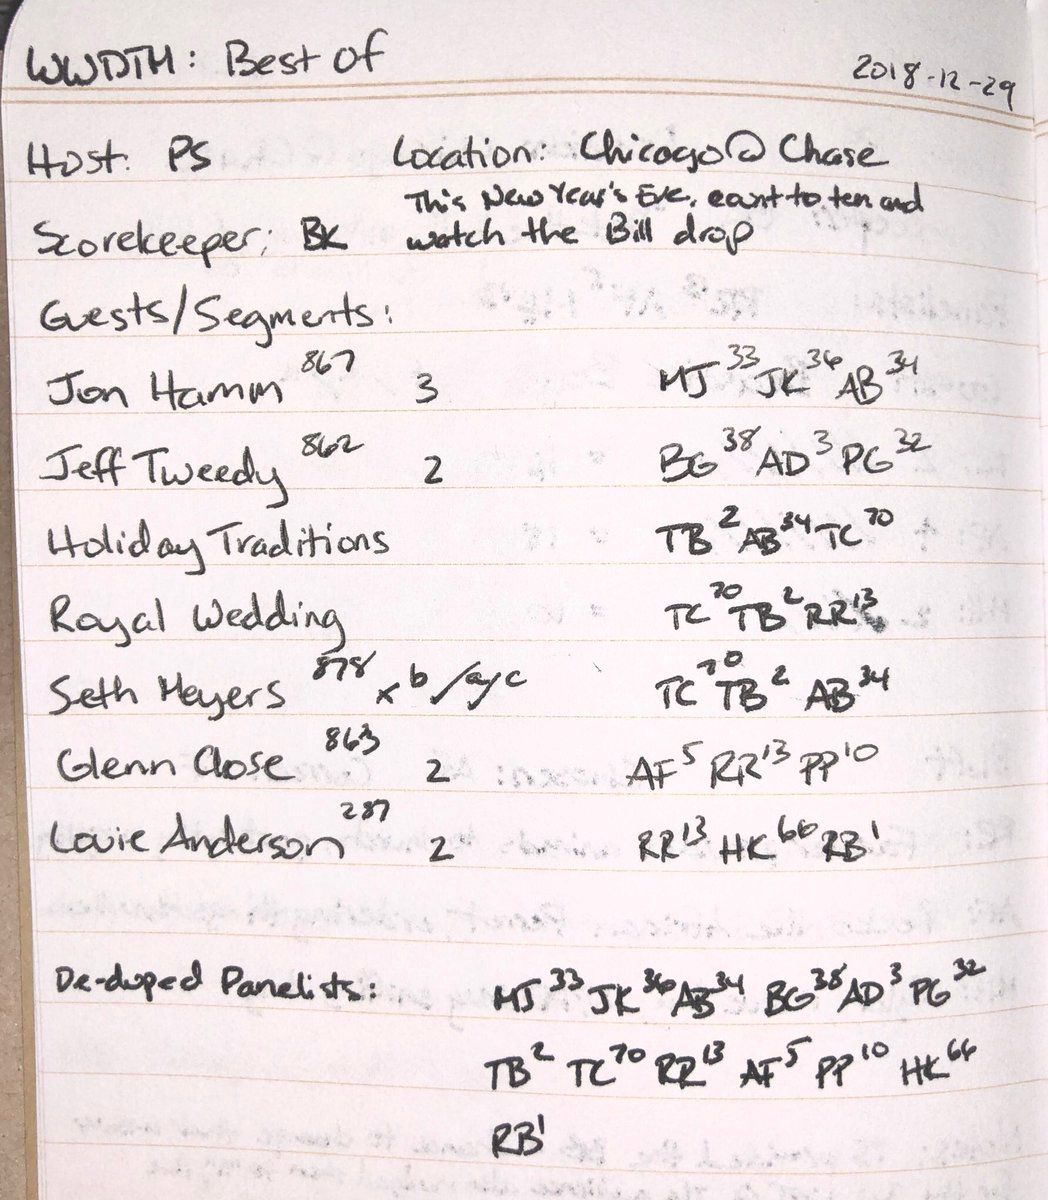 WWDTM: Best of 2018-12-29
Host: PS Location: Chicago@Chase
This New Year's Eve, count to ten and
Scorekeeper: BK watch the Bill drop
Guests/Segments:
Jon Hamm 867 3 MJ 33 JK 36 AB 34
Jeff Tweedy 862 2 BG 38 AD 3 PG 32
Holiday Traditions TB 2 AB 34 TC 70
Royal Wedding TC 70 TB 2 RR 13
Seth Meyers 878 x b/a/c TC 70 TB 2 AB 34
Glenn Close 863 2 AF 5 RR 13 PP 10
Louie Anderson 287 2 RR 13 HK 66 RB 1
De-duped Panelists: MJ 33 JK 36 AB 34 BG 38 AD 3 PG 32
TB 2 TC 70 RR 13 AF 5 PP 10 HK 66
RB 1